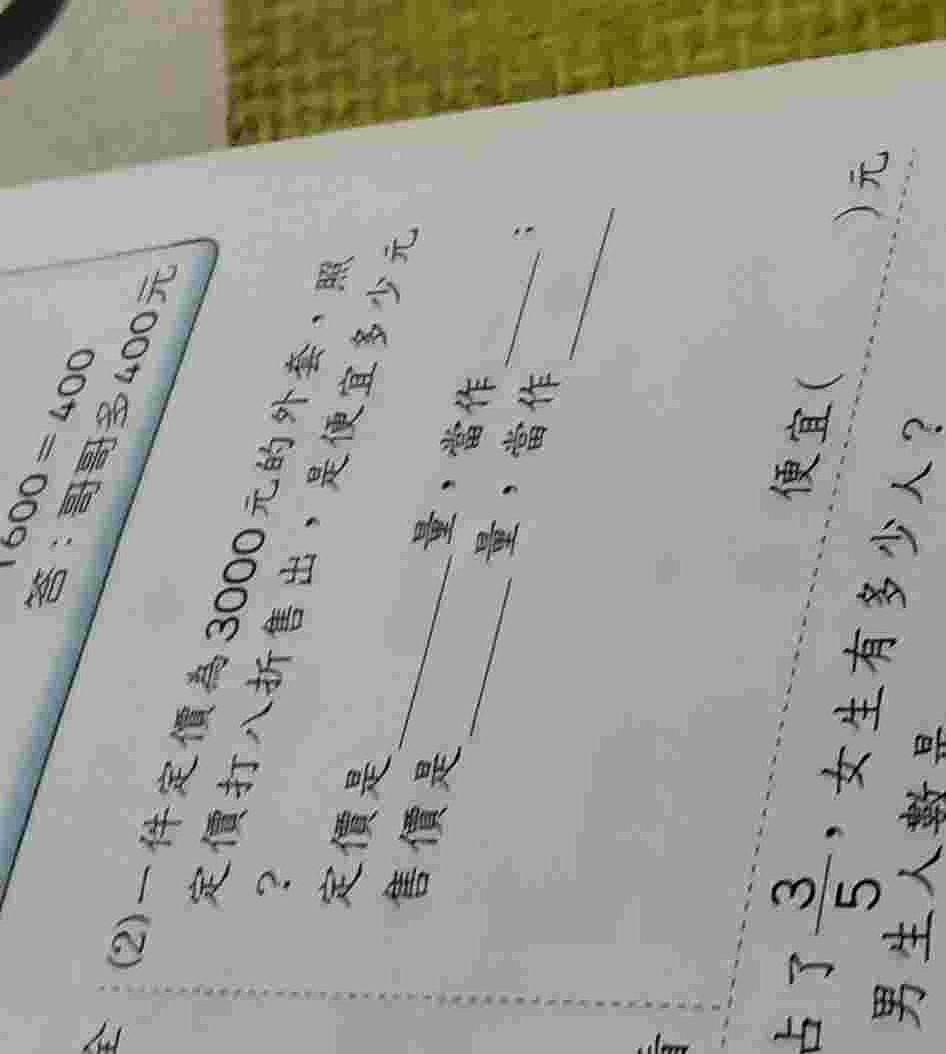 1600=400
答：哥哥多400元
(2)一件定價為3000元的外套，照
定價打八折售出，是便宜多少元
？
定價是______量，當作______；
售價是______量，當作______
便宜(　　)元
占了3/5，女生有多少人？
男生人數是